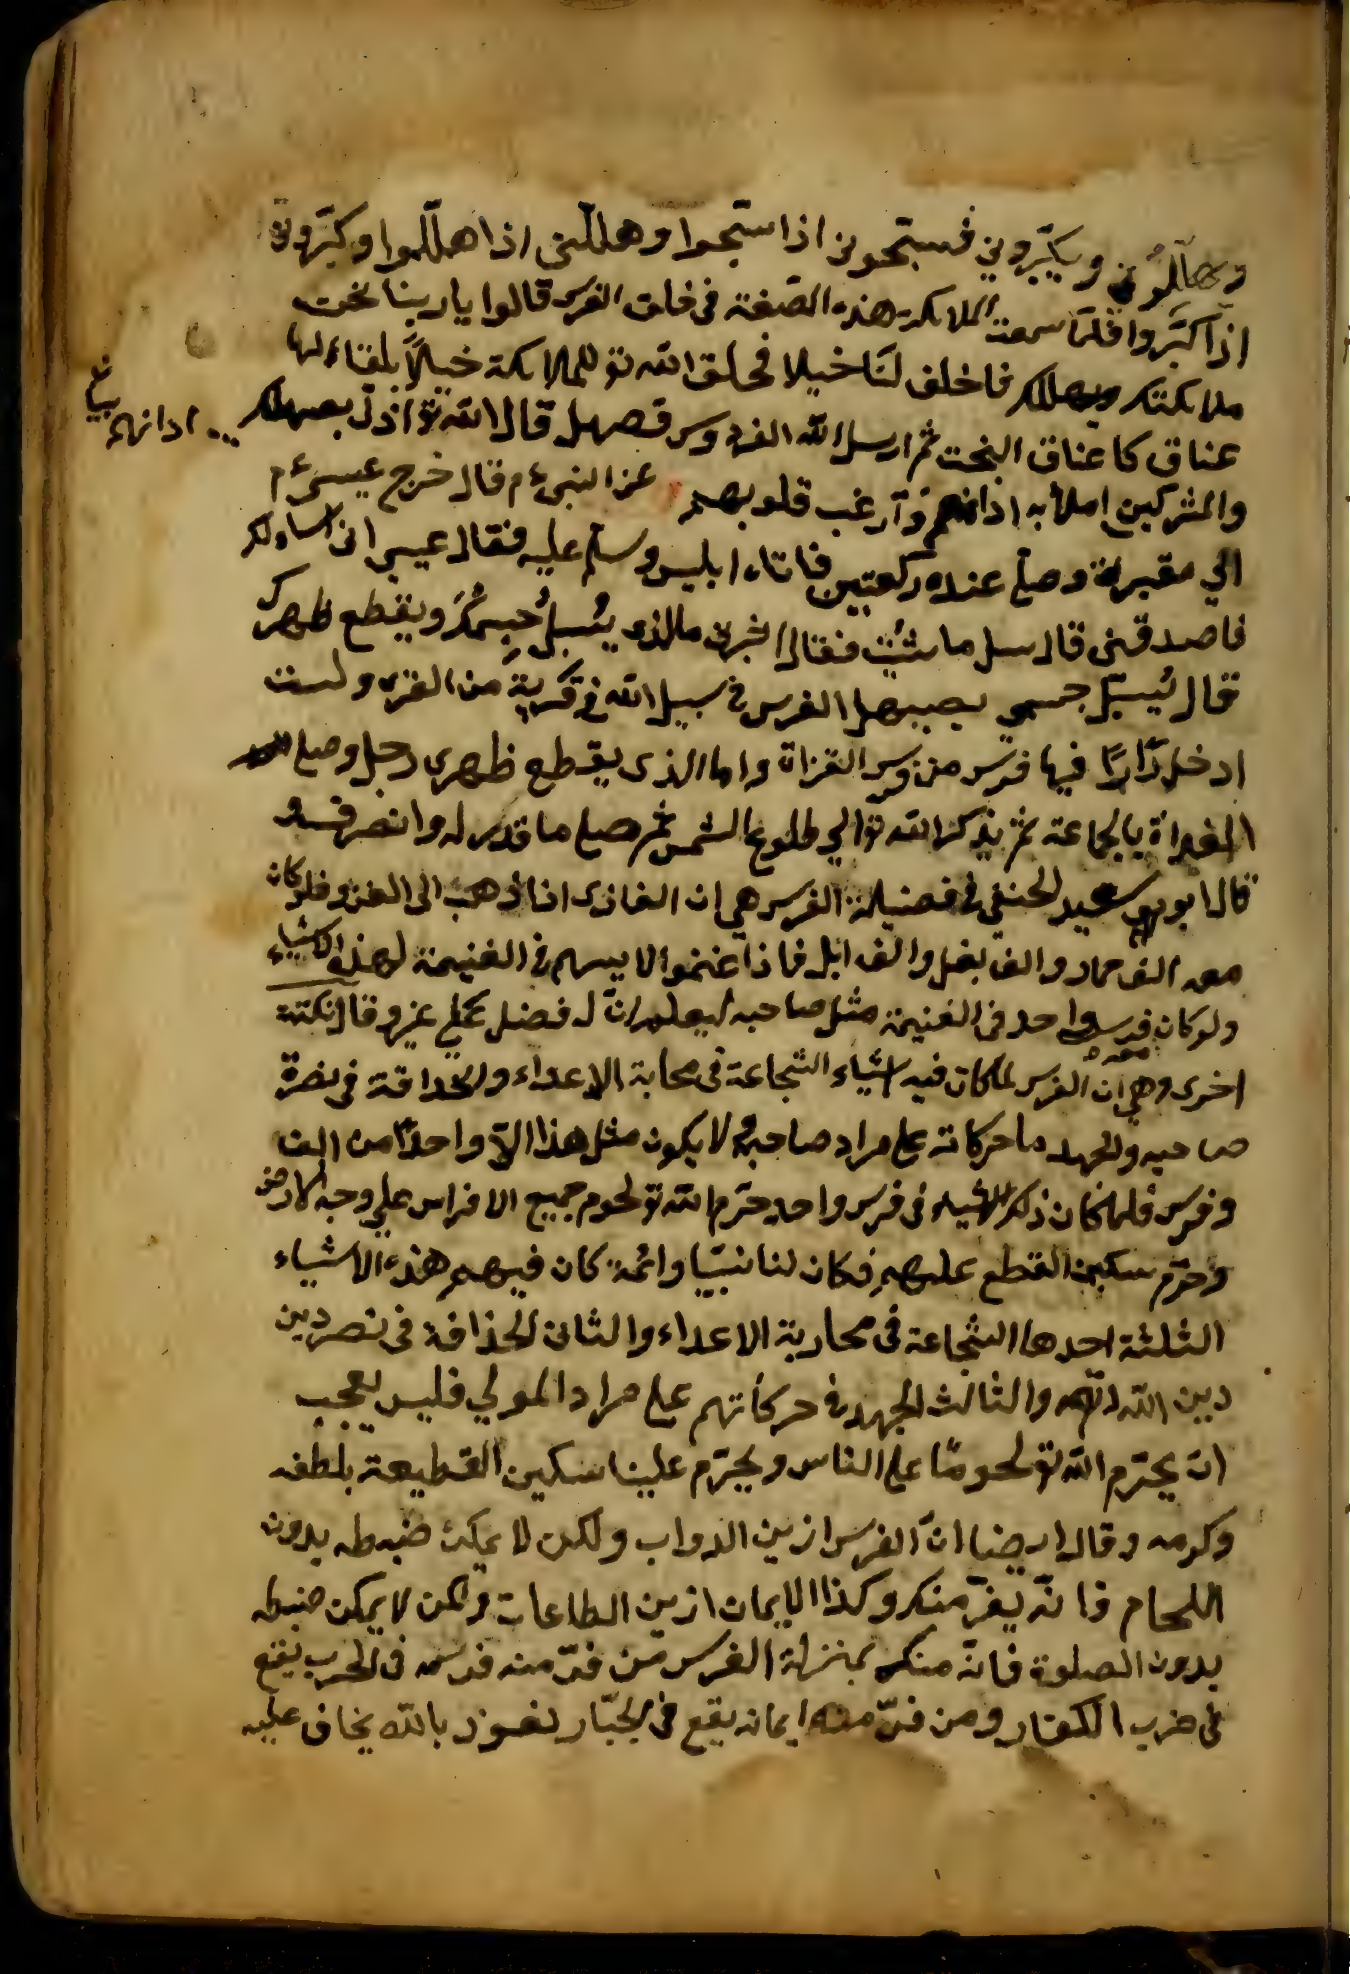 ويهللوني ويكبّروني فسبّحوني اذا سبّحوا وهللني اذا هلّلوا وكبّروني
اذا كبّروا فلما سمعت الملائكة هذه الصفة فى خلق الفرس قالوا يا ربنا نحن
ملائكتك فاخلق لنا خيلا فخلق الله تع للملائكة خيلاً بلقاء لها
عناق كاعناق البخت ثم ارسل الله الفرس فصهل قال الله تع اذلّ بصهلك
اذانهم
والمشركين املأ به اذانهم وارعب قلوبهم عن النبى ءم قال خرج عيسى ءم
الي مقبرة وصلى عنده ركعتين فاتاه ابليس وسلم عليه فقال عيسى انى اسالك
فاصدقني قال سل ما شئت فقال اخبرنى ماالذى يُسبل جسمك ويقطع ظهرك
قال يُسبّل جسمي بصهيل الفرس فى سبيل الله فى قرية من القرى ولست
ادخل دارًا فيها فرس من فرس الغزاة واما الذى يقطع ظهرى رجل وصلى
الغداة بالجماعة ثم يذكر الله تع الي طلوع الشمس ثم صلى ما قدر له وانصرف
قال ابو سعيد الحنفي فى فضيلة الفرس هي ان الغازى اذا ذهب الى الغزو فلو كان
معه الف حمار والف بغل والف ابل فاذا غنموا لا يسهم فى الغنيمة لهذه الاشياء
ولو كان فرس واحد فى الغنيمة مثل صاحبه ليعلم انّ له فضل على غيره وقال نكتة
معه
اخرى وهي ان الفرس لما كان فيه اشياء الشجاعة فى محابة الاعداء والحذاقة فى نصرة
صاحبه والجهد ما حركاته على مراد صاحبه لا يكون مثل هذا الاّ واحدًا من الف
وفرس فلما كان ذلك الشياء فى فرس واحد حرّم الله تع لحوم جميع الافراس علي وجه الارض
وحرّم سكين القطع عليهم فكان لنا نبيّا وائمة كان فيهم هذه الاشياء
الثلثة احدها الشجاعة فى محاربة الاعداء والثانى الحذاقة فى نصر دين
دين الله والثالث الجهد فى حركاتهم على مراد المولي فليس بعجب
ان يحرّم الله تع لحومًا على الناس ويحرّم علينا سكين القطيعة بلطفه
وكرمه وقال ايضا انّ الفرس ازين الدواب ولكن لا يمكن ضبطه بدون
اللجام فانّه يفرّ منك وكذا الايمان ازين الطاعات ولكن لا يمكن ضبطه
بدون الصلوة فانّه منك بمنزلة الفرس من فرّ منه فرسه فى الحرب يقع
فى ضرب الكفار ومن فرّ منه ايمانه يقع فى الجبّار نعوذ بالله يخاف عليه